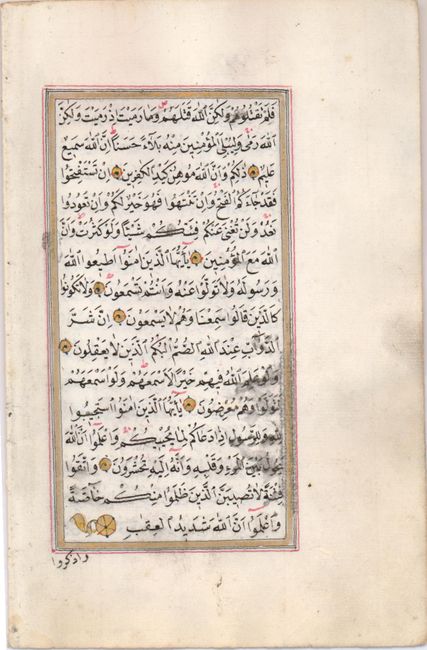 فَلَمْ تَقْتُلُوهُمْ وَلَكِنَّ اللّٰهَ قَتَلَهُمْ وَمَا رَمَيْتَ اِذْ رَمَيْتَ وَلَكِنَّ
اللّٰهَ رَمٰى وَلِيُبْلِىَ الْمُؤْمِنِينَ مِنْهُ بَلَاءً حَسَنًا اِنَّ اللّٰهَ سَمِيعٌ
عَلِيمٌ ذٰلِكُمْ وَاَنَّ اللّٰهَ مُوهِنُ كَيْدِ الْكٰفِرِينَ اِنْ تَسْتَفْتِحُوا
فَقَدْ جَاءَكُمُ الْفَتْحُ وَاِنْ تَنْتَهُوا فَهُوَ خَيْرٌ لَكُمْ وَاِنْ تَعُودُوا
نَعُدْ وَلَنْ تُغْنِىَ عَنْكُمْ فِئَتُكُمْ شَيْئًا وَلَوْ كَثُرَتْ وَاَنَّ
اللّٰهَ مَعَ الْمُؤْمِنِينَ يَااَيُّهَا الَّذِينَ اٰمَنُوا اَطِيعُوا اللّٰهَ
وَرَسُولَهُ وَلَا تَوَلَّوْا عَنْهُ وَاَنْتُمْ تَسْمَعُونَ وَلَا تَكُونُوا
كَالَّذِينَ قَالُوا سَمِعْنَا وَهُمْ لَا يَسْمَعُونَ اِنَّ شَرَّ
الدَّوَابِّ عِنْدَ اللّٰهِ الصُّمُّ الْبُكْمُ الَّذِينَ لَا يَعْقِلُونَ
وَلَوْ عَلِمَ اللّٰهُ فِيهِمْ خَيْرًا لَاَسْمَعَهُمْ وَلَوْ اَسْمَعَهُمْ
لَتَوَلَّوْا وَهُمْ مُعْرِضُونَ يَااَيُّهَا الَّذِينَ اٰمَنُوا اسْتَجِيبُوا
لِلّٰهِ وَلِلرَّسُولِ اِذَا دَعَاكُمْ لِمَا يُحْيِيكُمْ وَاعْلَمُوا اَنَّ اللّٰهَ
يَحُولُ بَيْنَ الْمَرْءِ وَقَلْبِهِ وَاَنَّهُ اِلَيْهِ تُحْشَرُونَ وَاتَّقُوا
فِتْنَةً لَا تُصِيبَنَّ الَّذِينَ ظَلَمُوا مِنْكُمْ خَاصَّةً
وَاعْلَمُوا اَنَّ اللّٰهَ شَدِيدُ الْعِقَابِ
واذكروا